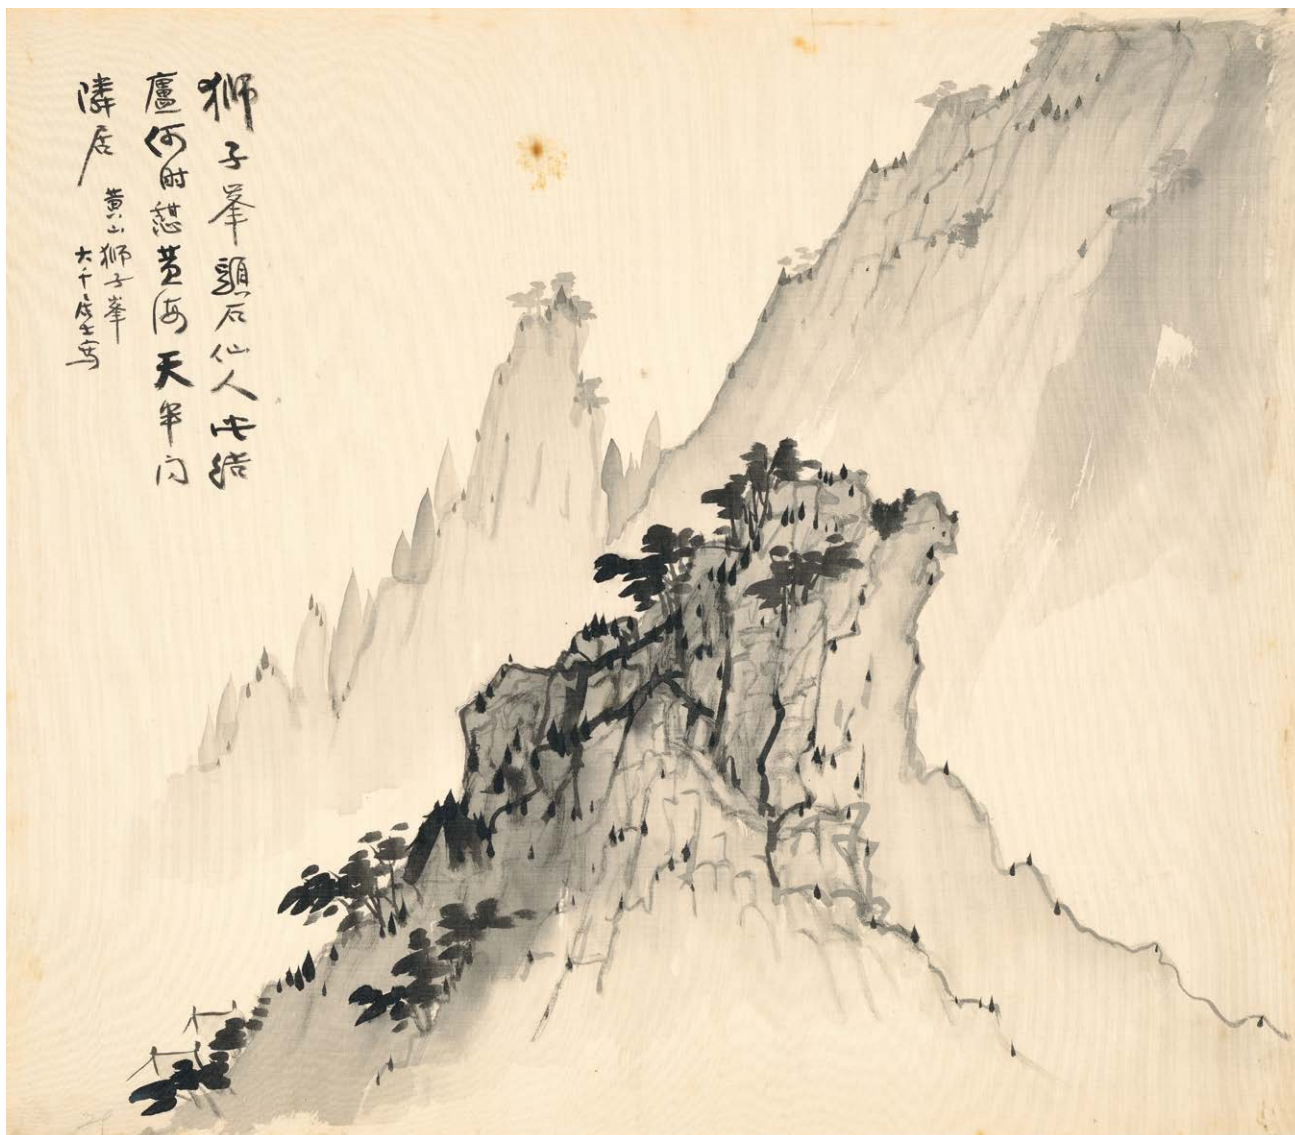 獅子峯頭石仙人此結
廬何時憩黃海天半問
隣居
黃山獅子峯
大千居士寫